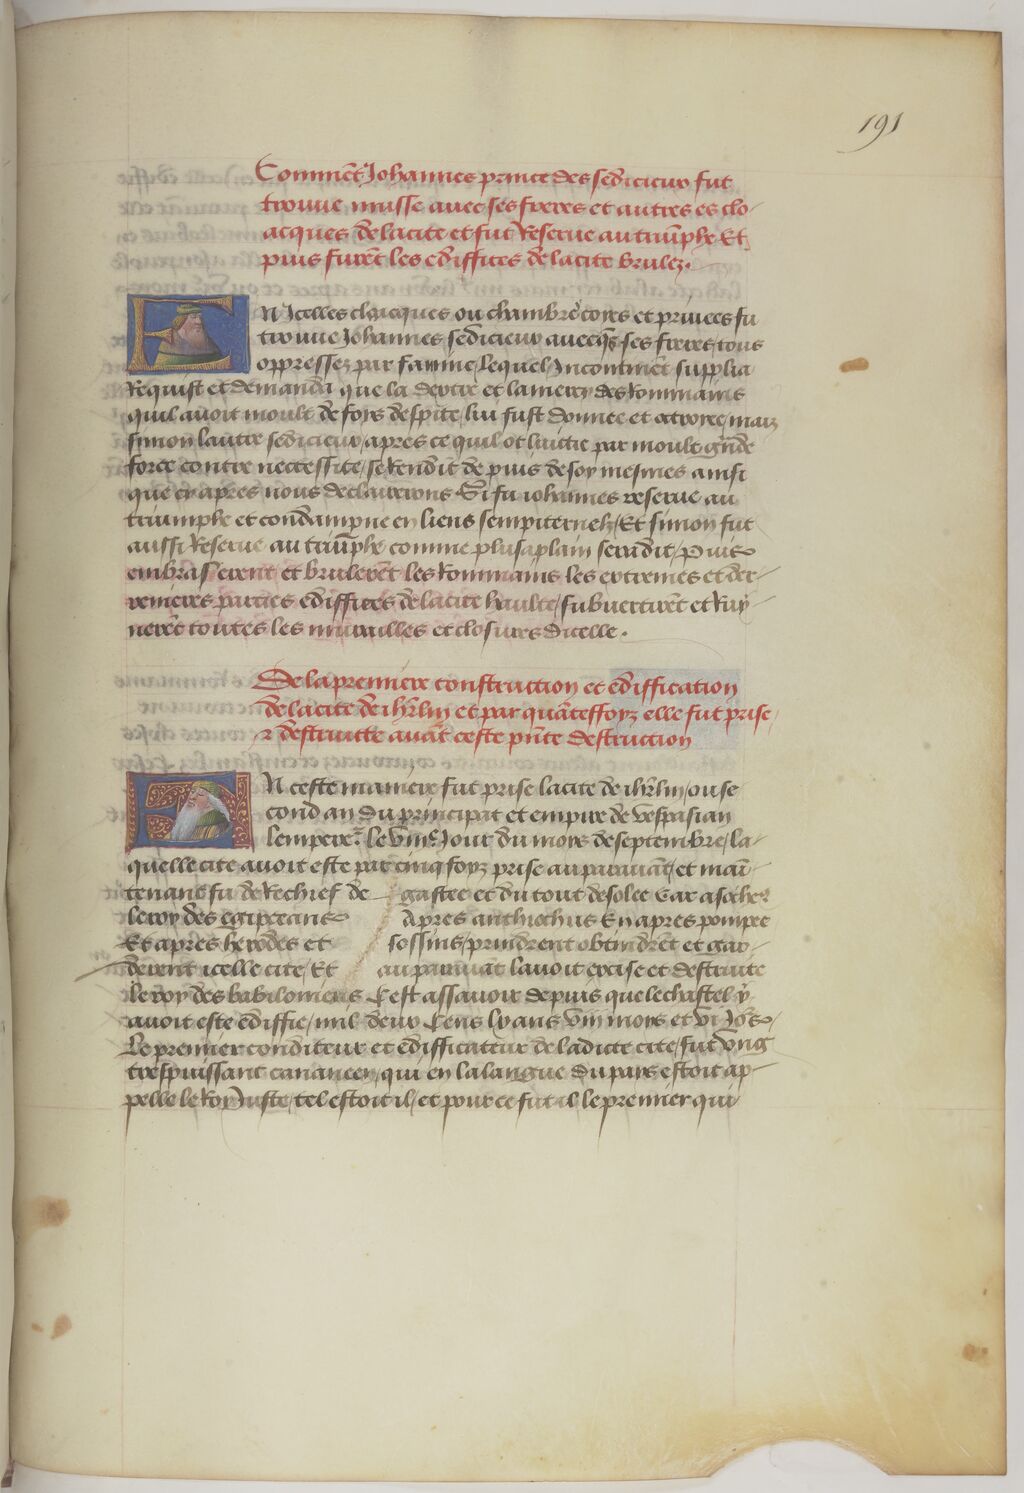 191
Comment Johannes prince des sedicieux fut
trouue musse auec ses freres et autres es clo-
acques de la cite et fut Reserue au triūphe Et
puis furēt les ediffices de la cite brulez.
EN Icelles cloacques ou chambrē coyes et priuees fu
trouue Johannes sedicieux auecqs ses freres tous
oppressez par famine lequel Incontinēt supplia
Requist et demanda que la dextre et la mercy des Rommains
quil auoit moult de foys despite lui fust donnee et octroyee maiz
simon lautre sedicieux apres ce quil ot luictie par moult grāde
force contre neccessite se Rendit depuis de soy mesmes ainsi
que cy apres nous declairerons Si fu iohannes reserue au
triumphe et condampne en liens sempiternelz Et simon fut
aussi Reserue au triūphe comme plus a plain sera dit Puis
embraserent et brulerēt les Rommains les extremes et der-
renieres parties ediffices de la cite haulte subuertirēt et Ruy-
nerēt toutes les murailles et closures dicelle.
De la premiere construction et ediffication
de la cite de ihrlm et par quāteffoyz elle fut prise
z destruitte auāt ceste pn̄te destruction
EN ceste maniere fut prise la cite de ihrlm ou se
cond an du principat et empire de vespasian
lempere.r le viiie Jour du moys de septembre la-
quelle cite auoit este par cinq foyz prise au parauāt et mai-
tenant fu de Rechief de gastee et du tout desolee Car asocheꝰ
le roy des egipcians Apres anthiochus En apres pompee
Et apres herodes et sossius prindrent obtindrēt et gar-
derent icelle cite Et au parauāt lauoit excise et destruite
le roy des babiloniens Cest assauoir depuis que le chastel y
auoit este ediffie mil deux Cens lx ans viii moys et vi Jo's
Le premier conditeur et edifficateur de ladicte cite fut vng
trespuissant cananeen qui en la langue du pays estoit ap-
pelle le Roy Juste tel estoit il et pour ce fut il le premier qui